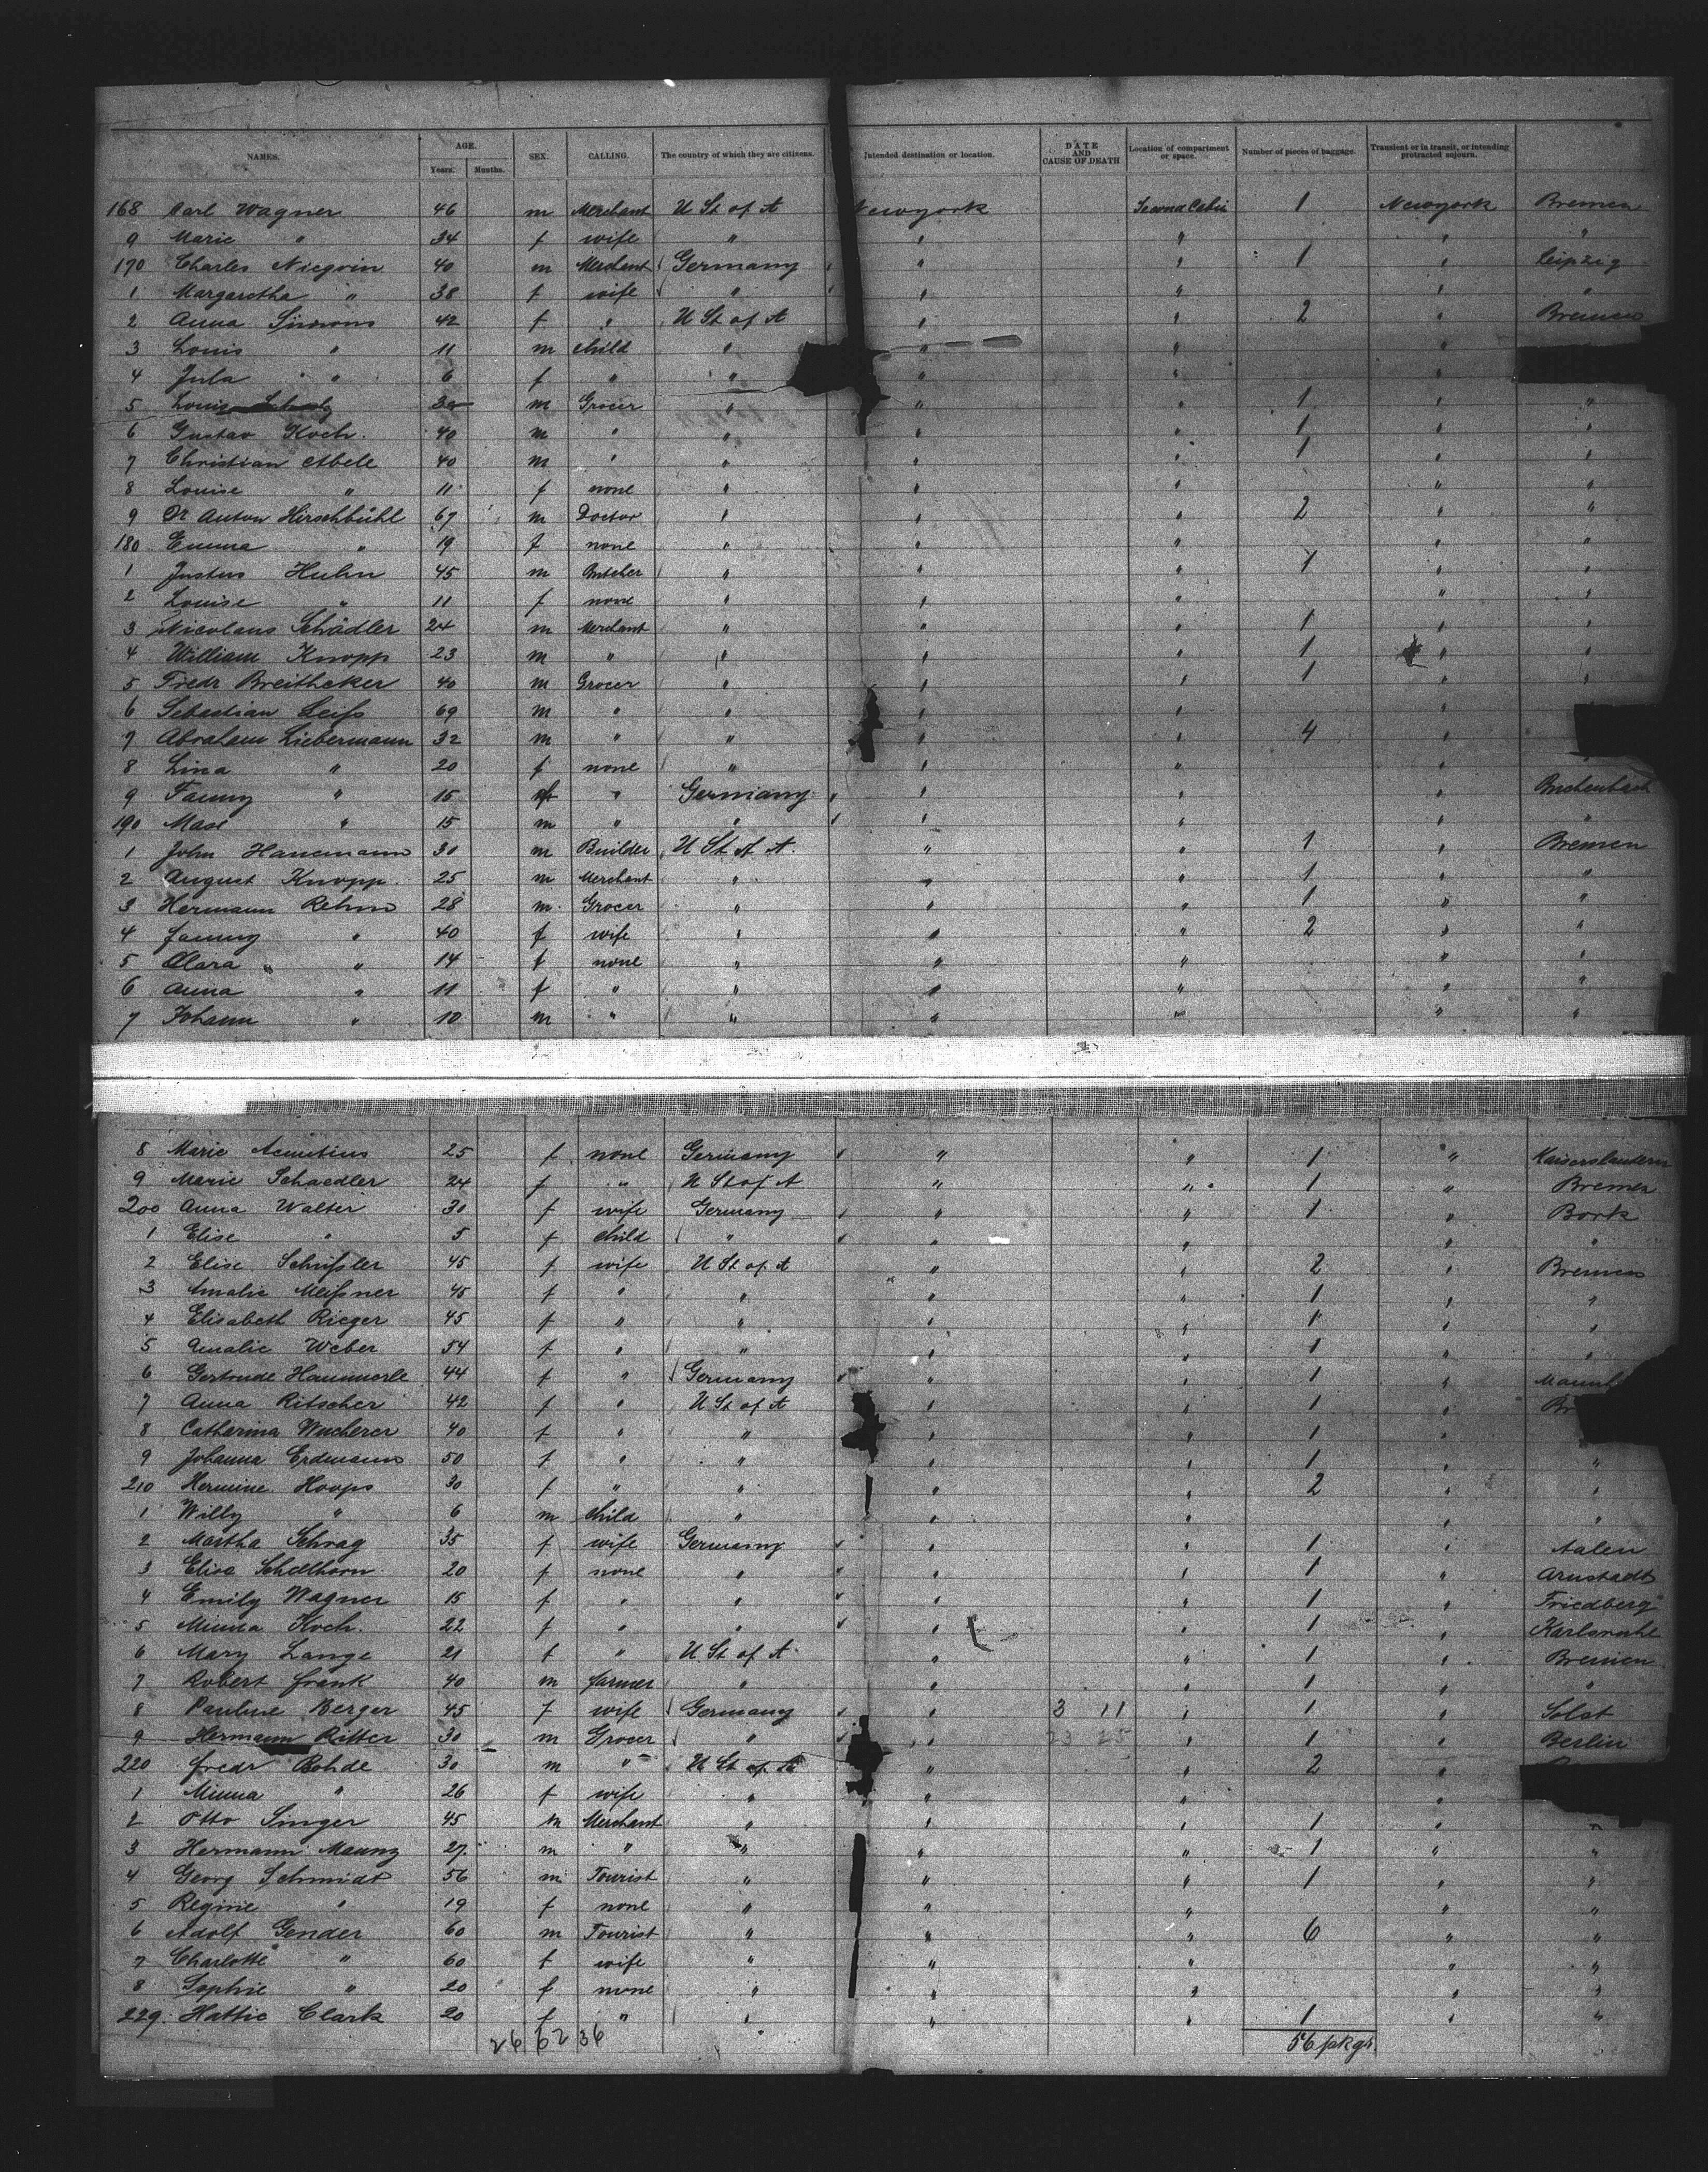 NAMES. AGE. Years. Months. SEX. CALLING. The country of which they are citizens. Intended destination or location. DATE AND CAUSE OF DEATH Location of compartment or space. Number of pieces of baggage. Transient or in transit, or intending protracted sojourn.
168 Carl Wagner 46 m Merchant U St of A Newyork Second Cabin 1 Newyork Bremen
9 Marie " 34 f wife " " " " "
170 Charles 40 m Merchant Germany " " 1 " Leipzig
1 Margaretha " 38 f wife " " " " "
2 Anna Simons 42 f " U St of A " " 2 " Bremen
3 Louis " 11 m child " " " "
4 Jula " 6 f " " " " "
5 Louis m Grocer " " " 1 " "
6 Gustav Koch. 40 m " " " " 1 " "
7 Christian Abele 40 m " " " " 1 " "
8 Louise " 11 f none " " " " "
9 Dr Anton Hirschbühl 67 m Doctor " " " 2 " "
180 Emma " 19 f none " " " " "
1 Justus Huhn 45 m Butcher " " " 1 " "
2 Louise " 11 f none " " " " "
3 Nicolaus Schädler 24 m Merchant " " " 1 " "
4 William Knopp 23 m " " " " 1 " "
5 Fredr Breithcker 40 m Grocer " " " 1 " "
6 Sebastian Leiss 69 m " " " " "
7 Abraham Liebermann 32 m " " " " 4 "
8 Lina " 20 f none " " " " "
9 Fanny " 15 f " Germany " " "
190 Max " 15 m " " " " " "
1 John Hanemann 30 m Builder U St of A. " " 1 " Bremen
2 August Knopp. 25 m Merchant " " " 1 " "
3 Hermann Rehm 28 m. Grocer " " " 1 " "
4 Fanny " 40 f wife " " " 2 " "
5 Clara " " 14 f none " " " " "
6 Anna " 11 f " " " " " "
7 Johann " 10 m " " " " " "
8 Marie 25 f none Germany " " 1 " Kaiserslautern
9 Marie Schaedler 24 f " U St of A " " 1 " Bremen
200 Anna Walter 30 f wife Germany " " 1 " Bork
1 Elise " 5 f child " " " " "
2 Elise Schüssler 45 f wife U St of A " " 2 " Bremen
3 Amalie Meissner 45 f " " " " 1 " "
4 Elisabeth Rieger 45 f " " " " 1 " "
5 Amalie Weber 54 f " " " " 1 " "
6 Gertrude Hammerle 44 f " Germany " " 1 " Mannh
7 Anna Ritscher 42 f " U St of A " " 1 " Br
8 Catharina Wucherer 40 f " " " " 1 "
9 Johanna Erdmann 50 f " " " " 1 " "
210 Hermine Hoops 30 f " " " " 2 " "
1 Willy " 6 m child " " " " "
2 Martha Schrag 35 f wife Germany " " 1 " Aalen
3 Elise Schellhorn 20 f none " " " 1 " Arnstadt
4 Emily Wagner 15 f " " " " 1 " Friedberg
5 Minna Koch. 22 f " " " " 1 " Karlsruhe
6 Mary Lange 21 f " U St of A " " 1 " Bremen
7 Robert Frank 40 m farmer " " " 1 " "
8 Pauline Berger 45 f wife Germany " 3 11 " 1 " Solst
9 Hermann Ritter 30 m Grocer " " 23 25 " 1 " Berlin
220 Fredr Rohde 30 m " U St of A " " 2 "
1 Minna " 26 f wife " " " "
2 Otto Singer 45 m Merchant " " " 1 " "
3 Hermann Maunz 27. m " " " " 1 " "
4 Georg Schmidt 56 m Tourist " " " 1 " "
5 Regine " 19 f none " " " " "
6 Adolf Gender 60 m Tourist " " " 6 " "
7 Charlotte " 60 f wife " " " " "
8 Sophie " 20 f none " " " " "
229. Hattie Clark 20 f " " " " 1 " "
26 62 36 56 pkgs.